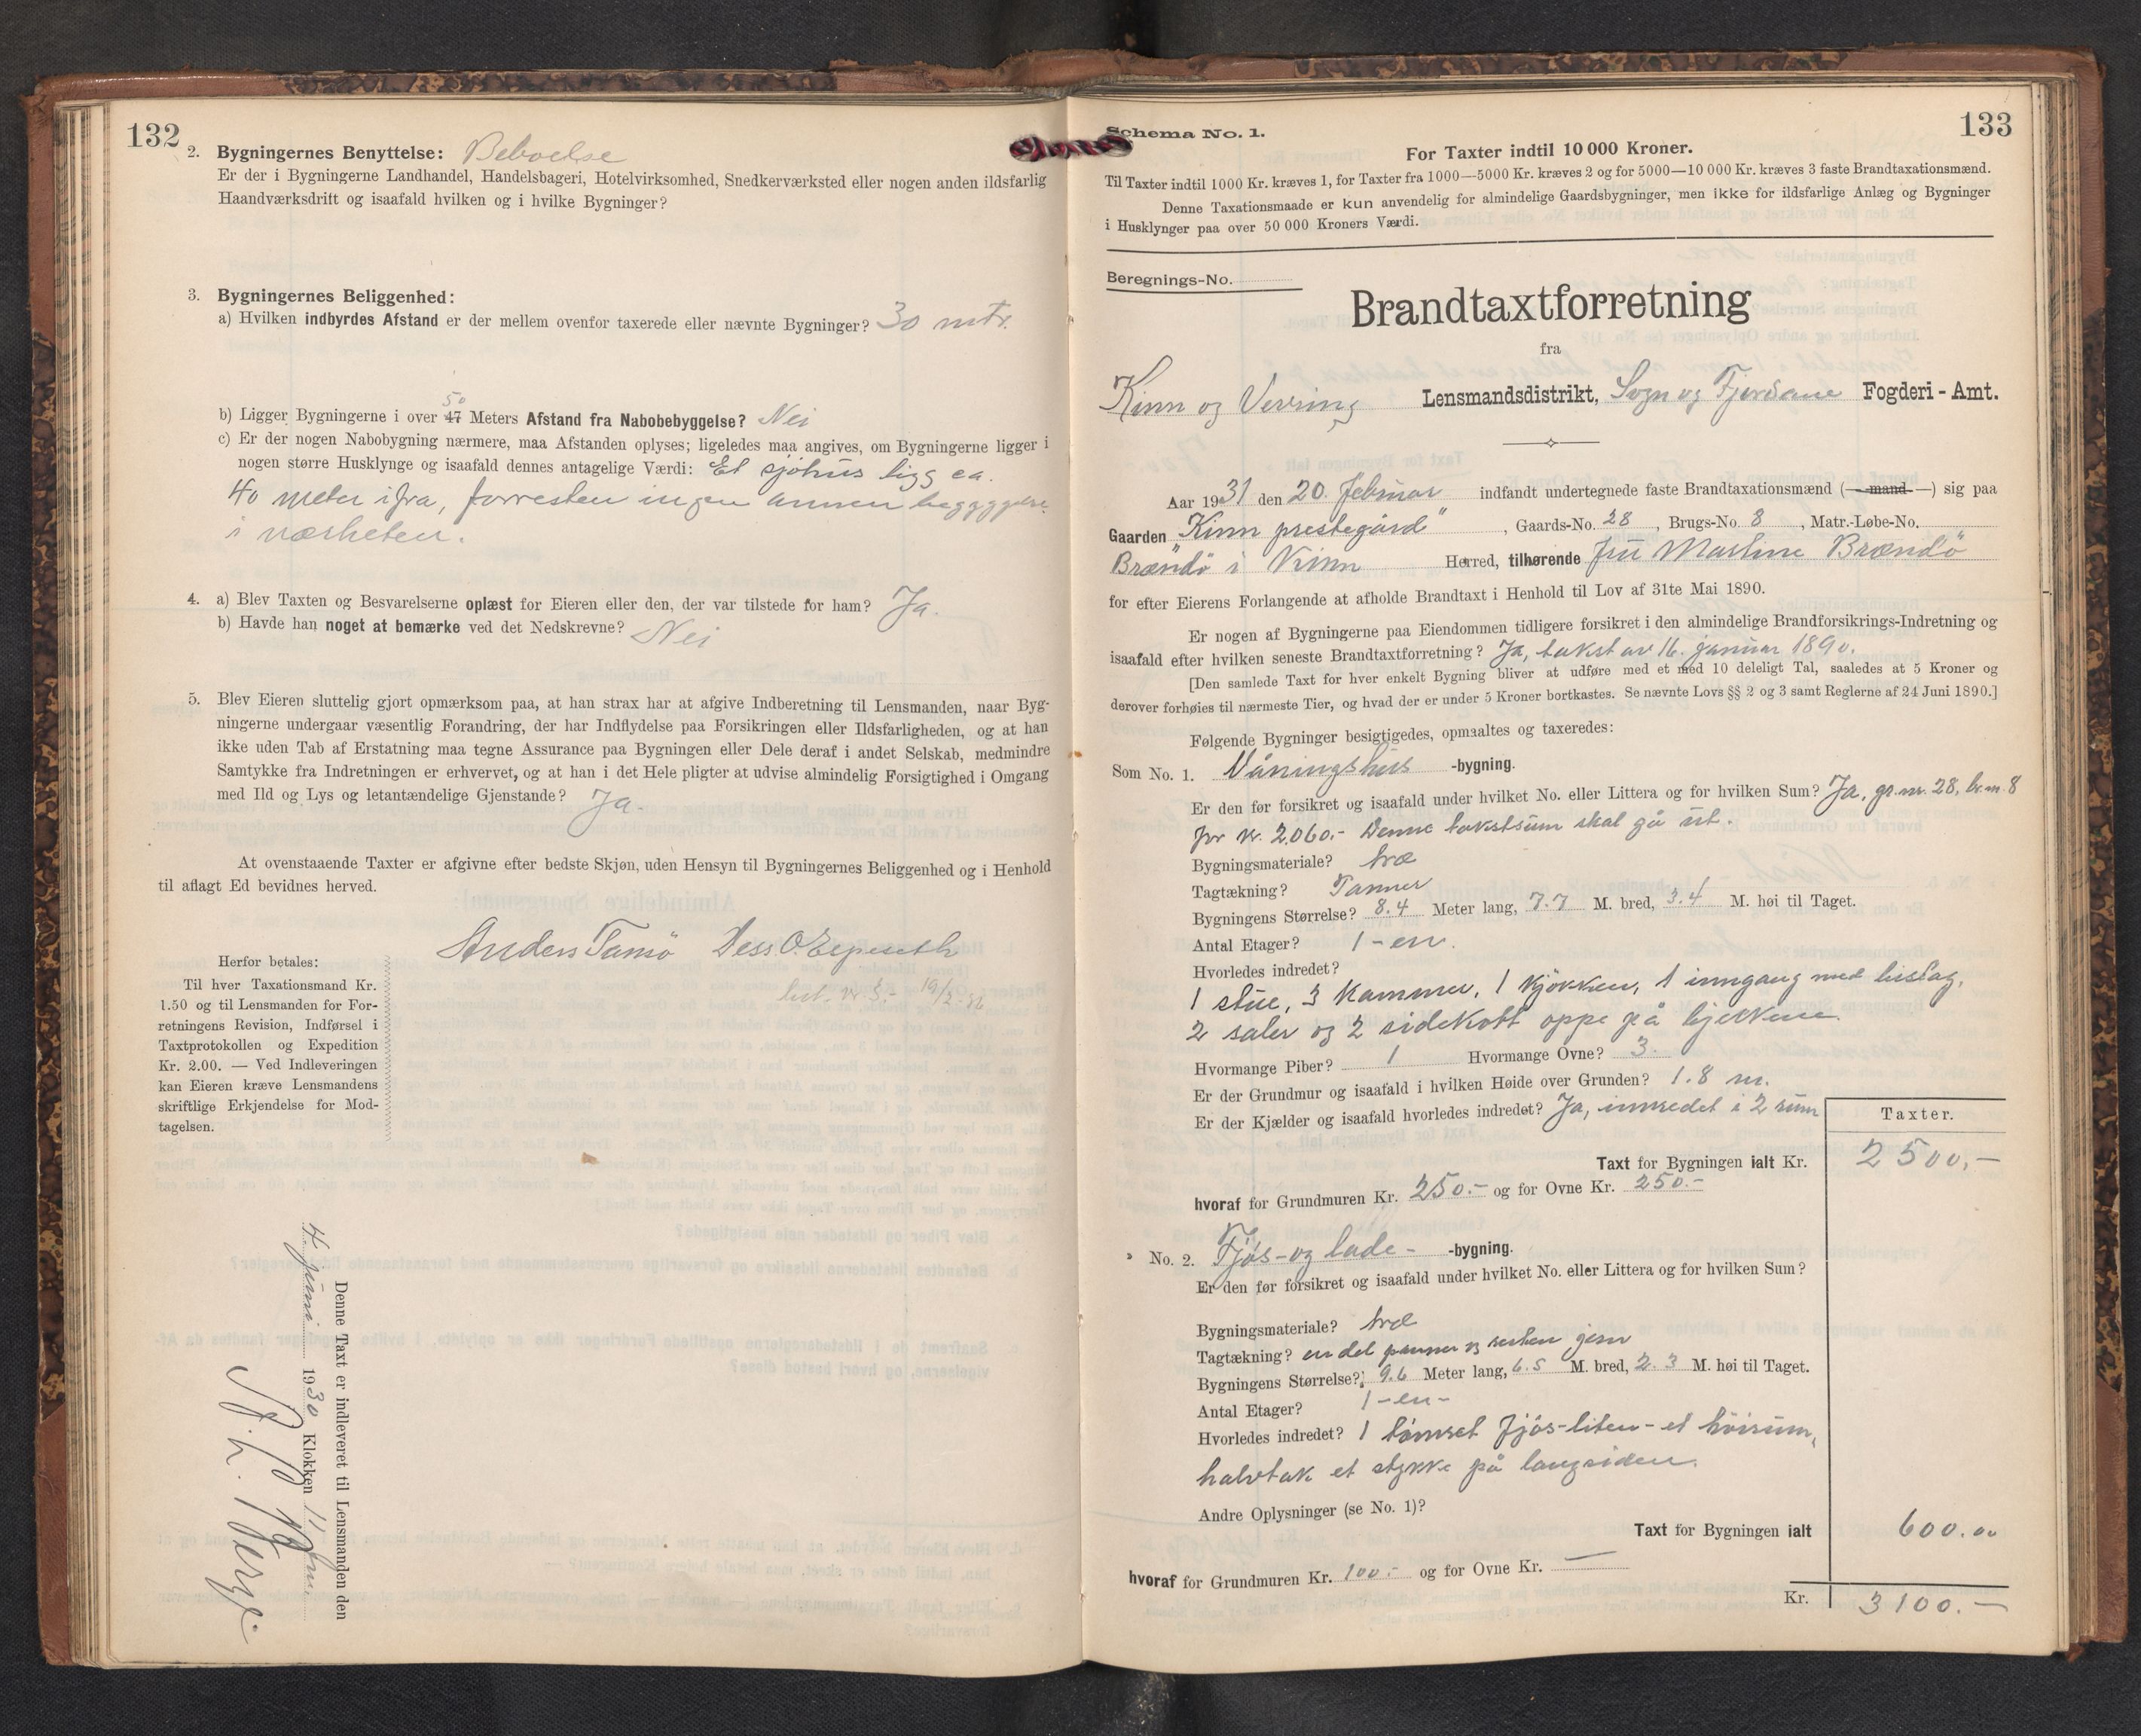 132
2. Bygningernes Benyttelse: Beboelse
Er der i Bygningerne Landhandel, Handelsbageri, Hotelvirksomhed, Snedkerværksted eller nogen anden ildsfarlig
Haandværksdrift og isaafald hvilken og i hvilke Bygninger?
3. Bygningernes Beliggenhed:
a) Hvilken indbyrdes Afstand er der mellem ovenfor taxerede eller nævnte Bygninger? 30 mtr.
50
b) Ligger Bygningerne i over 47 Meters Afstand fra Nabobebyggelse? Nei
c) Er der nogen Nabobygning nærmere, maa Afstanden oplyses; ligeledes maa angives, om Bygningerne ligger i
nogen større Husklynge og isaafald dennes antagelige Værdi: Et sjøhus ligg ca.
40 meter ifra, forresten ingen annen
i nærheten.
4. a) Blev Taxten og Besvarelserne oplæst for Eieren eller den, der var tilstede for ham? Ja.
b) Havde han noget at bemærke ved det Nedskrevne? Nei
5. Blev Eieren sluttelig gjort opmærksom paa, at han strax har at afgive Indberetning til Lensmanden, naar Byg-
ningerne undergaar væsentlig Forandring, der har Indflydelse paa Forsikringen eller Ildsfarligheden, og at han
ikke uden Tab af Erstatning maa tegne Assurance paa Bygningen eller Dele deraf i andet Selskab, medmindre
Samtykke fra Indretningen er erhvervet, og at han i det Hele pligter at udvise almindelig Forsigtighed i Omgang
med Ild og Lys og letantændelige Gjenstande? Ja.
At ovenstaaende Taxter er afgivne efter bedste Skjøn, uden Hensyn til Bygningernes Beliggenhed og i Henhold
til aflagt Ed bevidnes herved.
Anders Tansø
Herfor betales:
Til hver Taxationsmand Kr.
1.50 og til Lensmanden for For-
retningens Revision, Indførsel i
Taxtprotokollen og Expedition
Kr. 2.00. — Ved Indleveringen
kan Eieren kræve Lensmandens
skriftlige Erkjendelse for Mod-
tagelsen.
Denne Taxt er indleveret til Lensmanden den
4 juni 1930 Klokken 11
133
Schema No. 1.
For Taxter indtil 10 000 Kroner.
Til Taxter indtil 1000 Kr. kræves 1, for Taxter fra 1000—5000 Kr. kræves 2 og for 5000—10 000 Kr. kræves 3 faste Brandtaxationsmænd.
Denne Taxationsmaade er kun anvendelig for almindelige Gaardsbygninger, men ikke for ildsfarlige Anlæg og Bygninger
i Husklynger paa over 50 000 Kroners Værdi.
Beregnings-No.
Brandtaxtforretning
fra
Kinn og Vevring Lensmandsdistrikt, Sogn og Fjordane Fogderi-Amt.
Aar 1931 den 20. februar indfandt undertegnede faste Brandtaxationsmænd (— mand —) sig paa
Gaarden "Kinn prestegård", Gaards-No. 28, Brugs-No. 8, Matr.-Løbe-No.
Brændø i Kinn Herred, tilhørende fru Martine Brændö
for efter Eierens Forlangende at afholde Brandtaxt i Henhold til Lov af 31te Mai 1890.
Er nogen af Bygningerne paa Eiendommen tidligere forsikret i den almindelige Brandforsikrings-Indretning og
isaafald efter hvilken seneste Brandtaxtforretning? Ja, takst av 16. januar 1890.
[Den samlede Taxt for hver enkelt Bygning bliver at udføre med et med 10 deleligt Tal, saaledes at 5 Kroner og
derover forhøies til nærmeste Tier, og hvad der er under 5 Kroner bortkastes. Se nævnte Lovs §§ 2 og 3 samt Reglerne af 24 Juni 1890.]
Følgende Bygninger besigtigedes, opmaaltes og taxeredes:
Som No. 1. Våningshus -bygning.
Er den før forsikret og isaafald under hvilket No. eller Littera og for hvilken Sum? Ja, gr.nr. 28, br.nr. 8
for kr. 2.060.- Denne takstsum skal gå ut.
Bygningsmateriale? træ
Tagtækning? Panner
Bygningens Størrelse? 8.4 Meter lang, 7.7 M. bred, 3.4 M. høi til Taget.
Antal Etager? 1 - en.
Hvorledes indredet?
1 stue, 3 kammer, 1 kjøkken, 1 inngang med bislag,
2 saler og 2 sidekott oppe på bjelkene.
Hvormange Piber? 1 Hvormange Ovne? 3.
Er der Grundmur og isaafald i hvilken Høide over Grunden? 1.8 m.
Er der Kjælder og isaafald hvorledes indredet? Ja, innredet i 2 rum
Taxter.
Taxt for Bygningen ialt Kr. 2500,-
hvoraf for Grundmuren Kr. 250.- og for Ovne Kr. 250.-
" No. 2. Fjøs- og lade- -bygning.
Er den før forsikret og isaafald under hvilket No. eller Littera og for hvilken Sum?
Bygningsmateriale? træ
Tagtækning? en del panner og resten
Bygningens Størrelse? 9.6 Meter lang, 6.5 M. bred, 2.3 M. høi til Taget.
Antal Etager? 1 - en -
Hvorledes indredet? 1 tømret fjøs - liten - et høirum,
halvtak et stykke på langsiden.
Andre Oplysninger (se No. 1)?
Taxt for Bygningen ialt 600.00
hvoraf for Grundmuren Kr. 100.- og for Ovne Kr. —
Kr. 3100.-